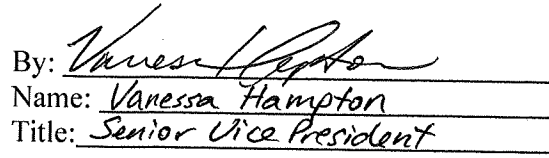 By: Vanessa Hampton
Name: Vanessa Hampton
Title: Senior Vice President